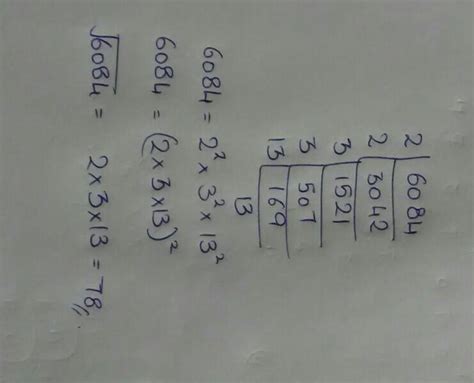 2 | 6084
2 | 3042
3 | 1521
3 | 507
13 | 169
13
6084 = 2² × 3² × 13²
6084 = (2 × 3 × 13)²
√6084 = 2 × 3 × 13 = 78,,